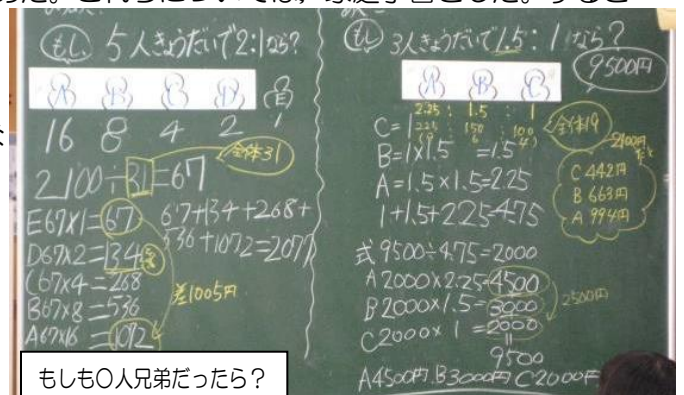 もし 5人きょうだいで2:1なら?
A B C D E
16 8 4 2 1
全体31
2100÷31=67
E67×1=67
D67×2=134
C67×4=268
B67×8=536
A67×16=1072
67+134+268+
536+1072=2077
差1005円
もしも〇人兄弟だったら?
もし 3人きょうだいで1.5:1なら?
9500円
A B C
2.25 : 1.5 : 1
225 : 150 : 100
全体19
C=1
B=1×1.5 =1.5
A=1.5×1.5=2.25
1+1.5+2.25=4.75
2100円
C 442円
B 663円
A 994円
式 9500÷4.75=2000
A 2000×2.25=4500
B 2000×1.5=3000
C 2000×1=2000
2500円
9500
A4500円 B3000円 C2000円